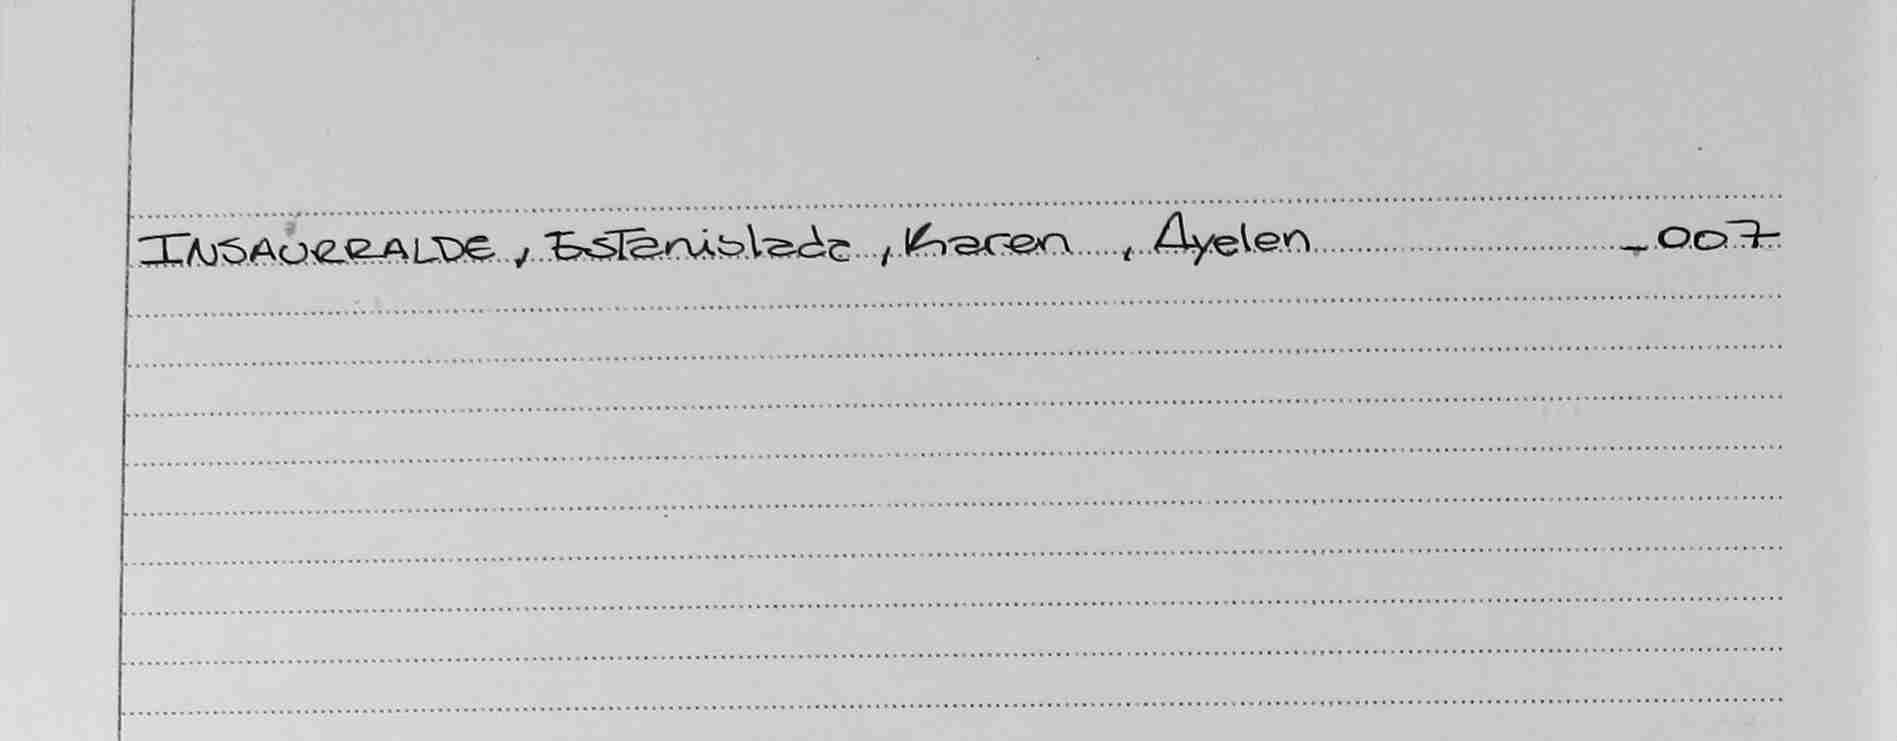 INSAURRALDE, Estanislada, Karen, Ayelen _007